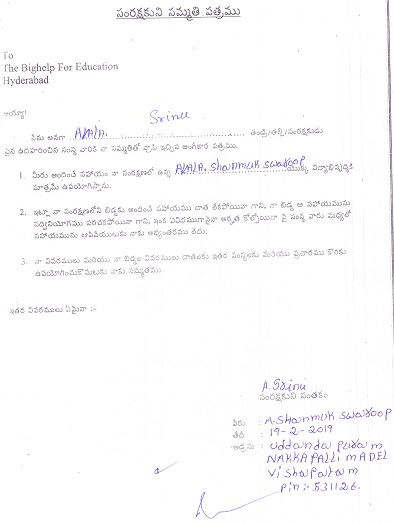 సంరక్షకుని సమ్మతి పత్రము
To
The Bighelp For Education
Hyderabad
అయ్యా!
Srinu
నేను అనగా A/A/A. తండ్రి/తల్లి/సంరక్షకుడు
పైన ఉదహరించిన సంస్థ వారికి నా సమ్మతితో వ్రాసి ఇచ్చిన అంగీకార పత్రము.
1. మీరు అందించే సహాయం నా సంరక్షణలో ఉన్న A/A/A. Shanmuk swaroop యొక్క విద్యాభివృద్ధికి
మాత్రమే ఉపయోగిస్తాను.
2. ఇట్లా నా సంరక్షణలోని బిడ్డకు అందించే సహాయము దాత లేకపోయినా గాని, నా బిడ్డ ఆ సహాయమును
సద్వినియోగము పరచకపోయినా గాని, ఇంక ఏవిధముగానైనా అర్హత కోల్పోయినా పై సంస్థ వారు మధ్యలో
సహాయమును ఆపివేయుటకు నాకు అభ్యంతరము లేదు.
3. నా వివరములు మరియు నా బిడ్డల వివరములు దాతలకు ఇతర సంస్థలకు మరియు ప్రచారము కొరకు
ఉపయోగించుకొనుటకు నాకు సమ్మతము.
ఇతర వివరములు ఏమైనా :-
A. Srinu
సంరక్షకుని సంతకం
పేరు : A. Shanmuk swaroop
తేదీ : 19-2-2019
అడ్రసు : uddanda puram
NAKKAPALLI MADEL
Vishapatam
Pin:- 531126.